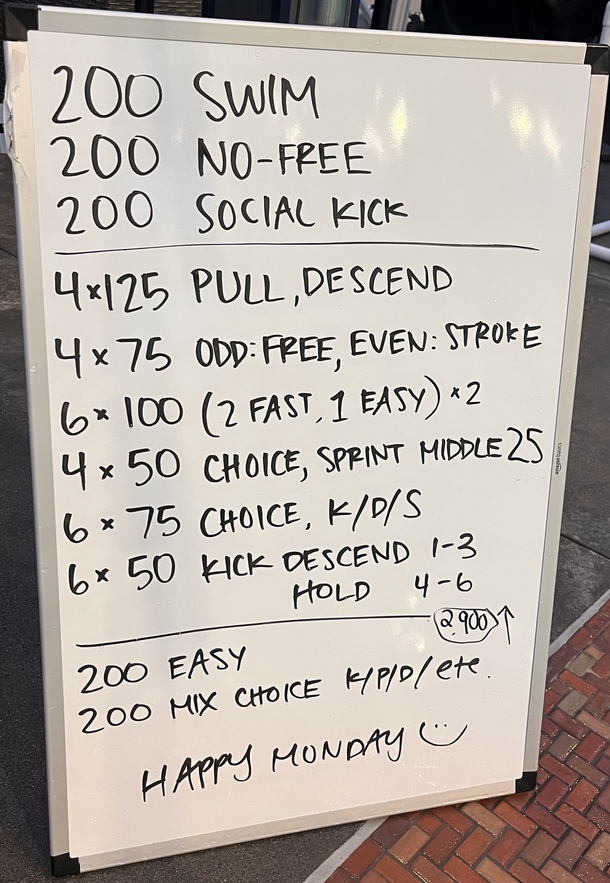 200 SWIM
200 NO-FREE
200 SOCIAL KICK
4×125 PULL, DESCEND
4×75 ODD: FREE, EVEN: STROKE
6×100 (2 FAST, 1 EASY) ×2
4×50 CHOICE, SPRINT MIDDLE 25
6×75 CHOICE, K/D/S
6×50 KICK DESCEND 1-3
HOLD 4-6
2,900 ↑
200 EASY
200 MIX CHOICE K/P/D/etc.
HAPPY MONDAY
amazon basics